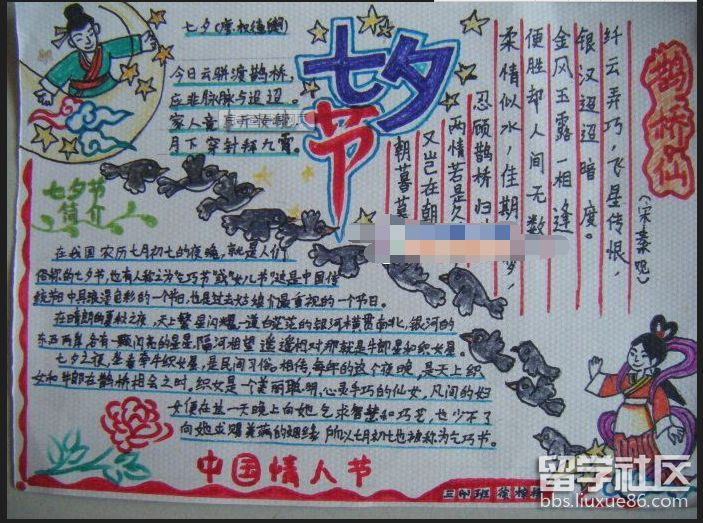 七夕节
七夕(唐 权德舆)
今日云骈渡鹊桥,
应非脉脉与迢迢。
家人竟
月下穿针拜九霄。
鹊桥仙
(宋秦观)
纤云弄巧,飞星传恨,
银汉迢迢暗度。
金风玉露一相逢
便胜却人间无数
柔情似水,佳期 梦,
忍顾鹊桥归
两情若是久
又岂在朝
朝暮暮
七夕节
简介
在我国农历七月初七的夜晚,就是人们
俗称的七夕节,也有人称之为乞巧节或"女儿节"这是中国传
统节日中具浪漫色彩的一个节日,也是过去姑娘们最重视的一个节日。
在晴朗的夏秋之夜,天上繁星闪耀一道白茫茫的银河横贯南北,银河的
东西两岸,各有一颗闪亮的星星,隔河相望 遥遥相对那就是牛郎星和织女星。
七夕之夜,坐看牵牛织女星,是民间习俗。相传,每年的这个夜晚,是天上织
女和牛郎在鹊桥相会之时。织女是一个美丽聪明,心灵手巧的仙女,凡间的妇
女便在这一天晚上向她乞求智慧和巧艺,也少不了
向她求赐美满的姻缘,所以七月初七也被称为乞巧节。
中国情人节
班
留学社区
bbs.liuxue86.com